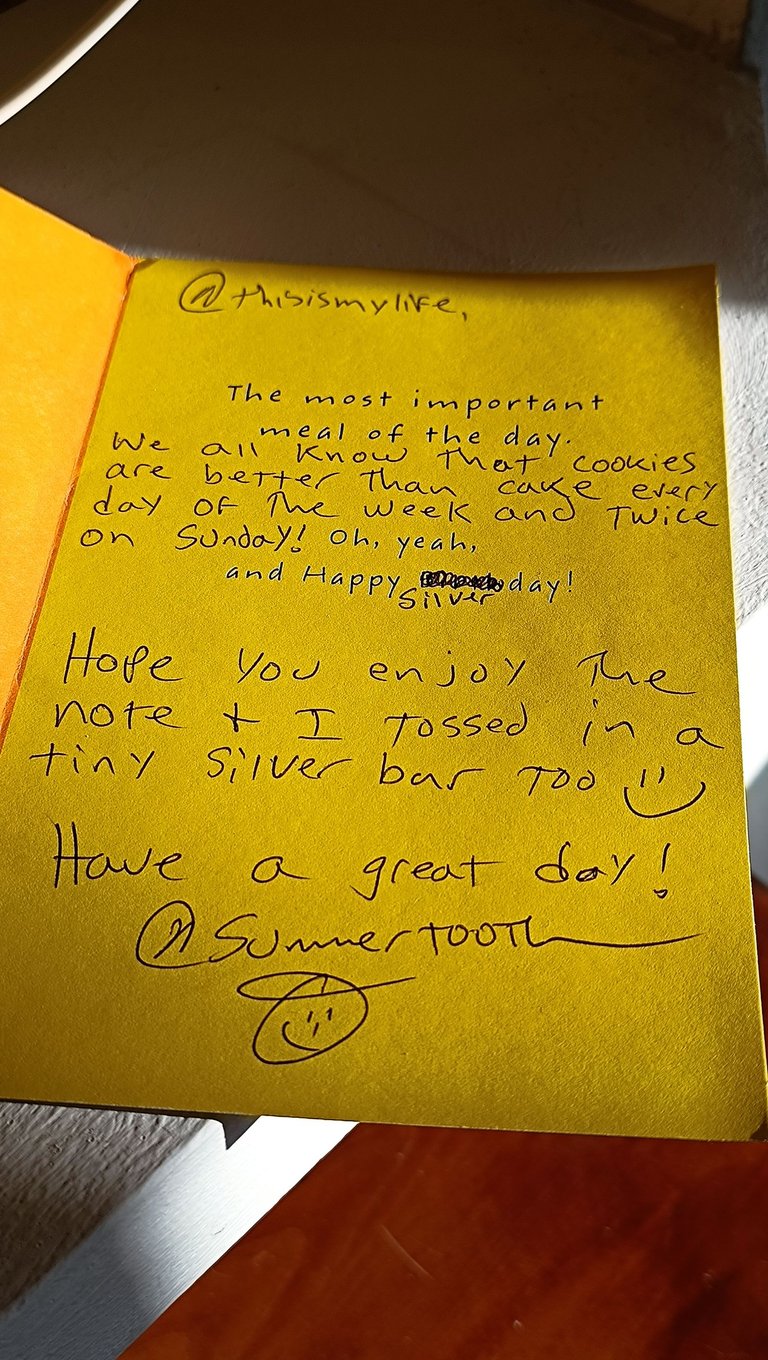 @thisismylife,
The most important
meal of the day.
We all know that cookies
are better than cake every
day of the week and twice
on Sunday! Oh, yeah,
and Happy day!
Silver
Hope you enjoy the
note + I tossed in a
tiny silver bar too
Have a great day!
@Summertooth